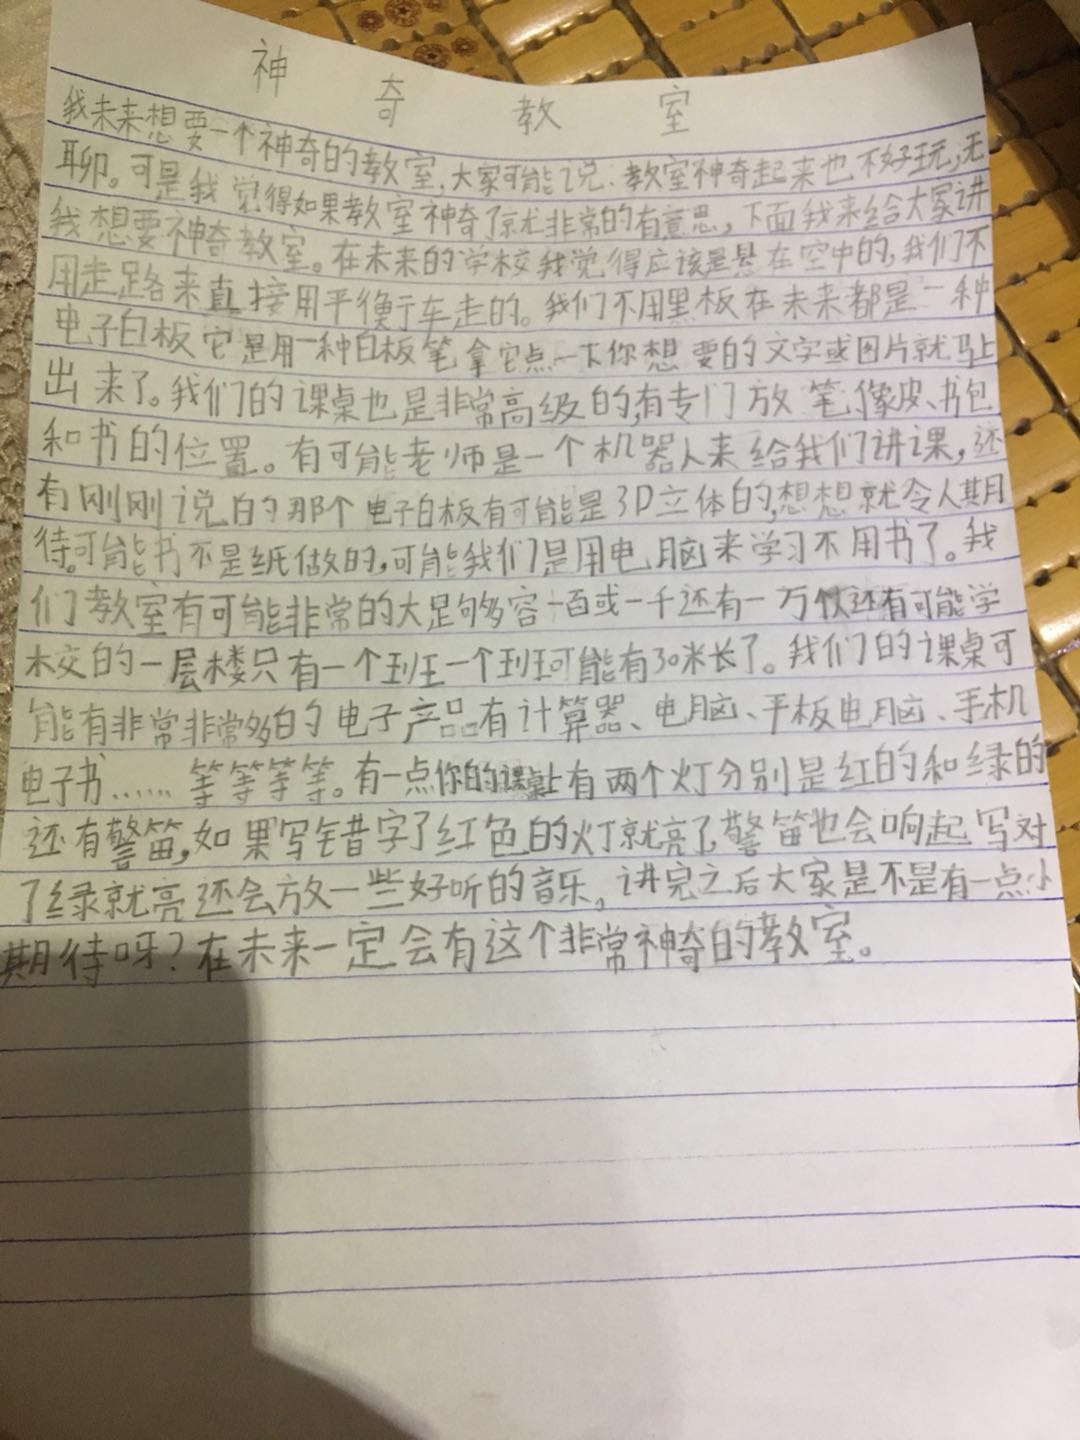 神奇教室
我未来想要一个神奇的教室,大家可能说:教室神奇起来也不好玩,无
聊。可是我觉得如果教室神奇了就非常的有意思,下面我来给大家讲
我想要神奇教室。在未来的学校我觉得应该是悬在空中的,我们不
用走路来直接用平衡车走的。我们不用黑板在未来都是一种
电子白板它是用一种白板笔拿它点一下你想要的文字或图片就马上
出来了。我们的课桌也是非常高级的,有专门放笔、像皮、书包
和书的位置。有可能老师是一个机器人来给我们讲课,还
有刚刚说的那个电子白板有可能是3D立体的,想想就令人期
待。可能书不是纸做的,可能我们是用电脑来学习不用书了。我
们教室有可能非常的大足够容一百或一千还有一万 还有可能学
校的一层楼只有一个班一个班可能有30米长了。我们的课桌可
能有非常非常多的电子产品有计算器、电脑、平板电脑、手机
电子书……等等等等。有一点你的课桌上有两个灯分别是红的和绿的
还有警笛,如果写错字了红色的灯就亮了,警笛也会响起写对
了绿就亮还会放一些好听的音乐,讲完之后大家是不是有一点小
期待呀?在未来一定会有这个非常神奇的教室。